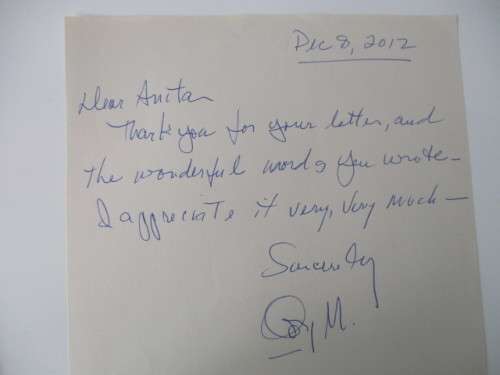 Dec 8, 2012
Dear Anita
Thank you for your letter, and
the wonderful words you wrote—
I appreciate it very, very much—
Sincerely
M.